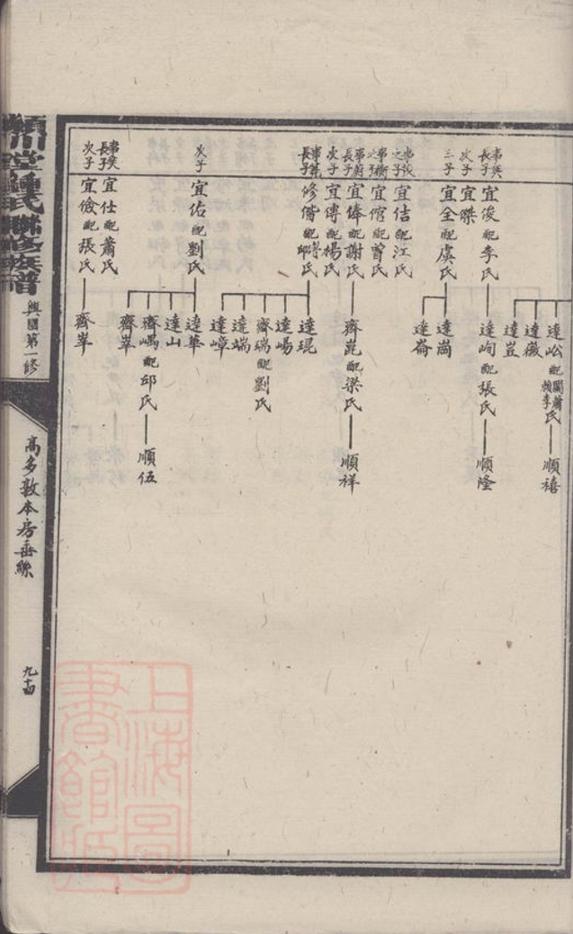 達岭配闕蕭賴李氏——順禧
達巍
達豈
長子 宜俊配李氏 達峋配張氏 順隆
次子 宜傑
三子 宜全配虞氏 達崗
達崙
之子 宜佶配江氏
之子 宜倌配曾氏
長子 宜俸配謝氏 齊崑配梁氏 順祥
次子 宜傳配楊氏
長子 修備配邱氏 達琨
達崵
齊瑞配劉氏
達端
達嶂
次子 宜佑配劉氏 達華
達山
齊嵎配邱氏 順伍
齊崋
長子 宜仕配蕭氏
次子 宜儉配張氏 齊崋
潁川堂鍾氏聯修族譜
興國第一修
高多敦本房垂絲
九十四
上海圖書館藏